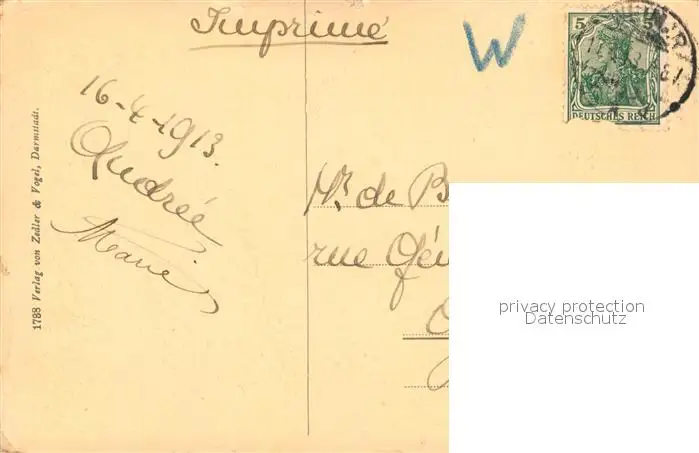 Imprimé
W
5
DEUTSCHES REICH
16-4-1913.
Andrée
Marie
1788 Verlag von Zedler & Vogel, Darmstadt.
Mr de B
rue Gé
privacy protection
Datenschutz